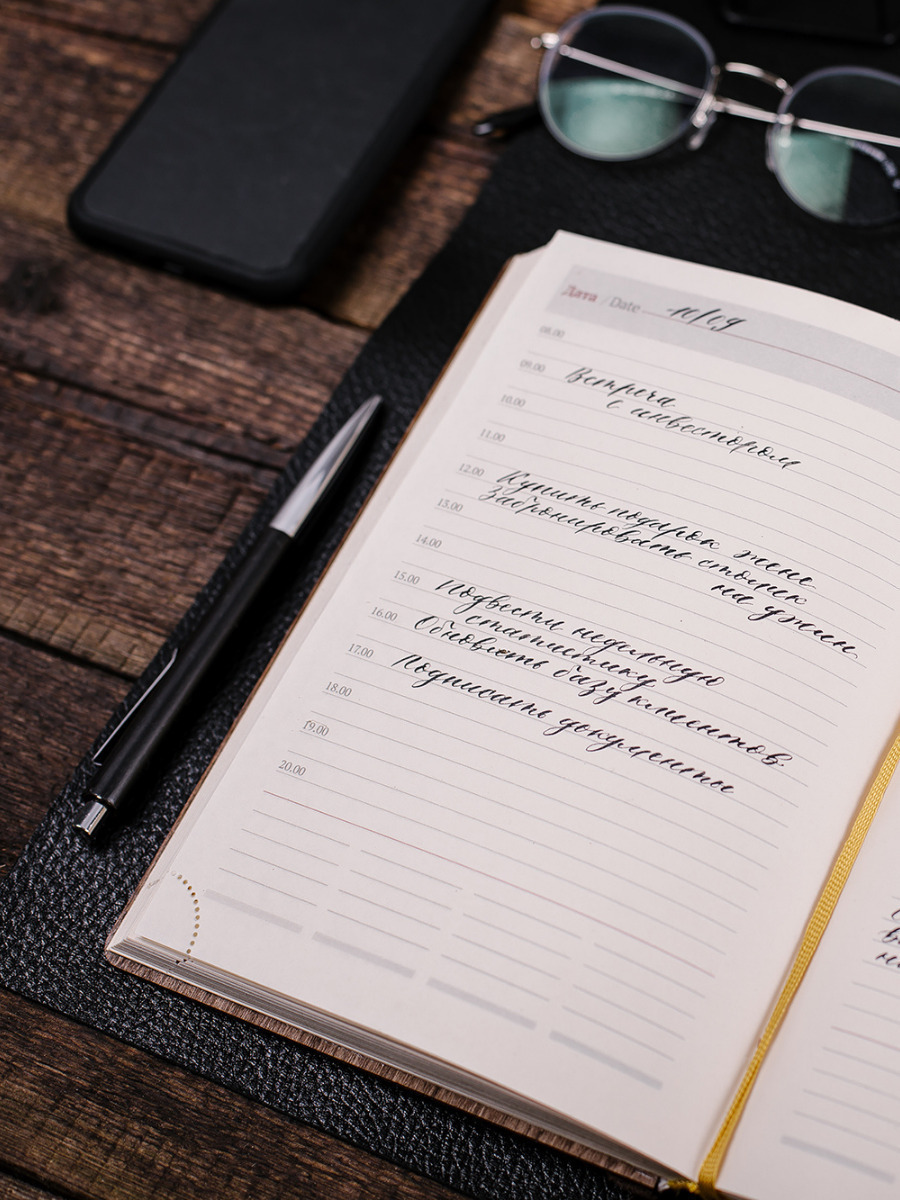 Дата / Date 10/09
08.00
09.00 Встреча
с инвестором
10.00
11.00
12.00 Купить подарок жене
13.00 Забронировать столик
на ужин
14.00
15.00 Подвести недельную
статистику
16.00 Обновить базу клиентов
17.00 Подписать документы
18.00
19.00
20.00